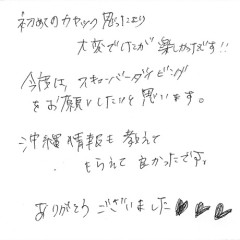 初めてのカヤック 思ったより
大変でしたが 楽しかったです!!
今度は、スキューバーダイビング
をお願いしたいと思います。
沖縄情報も教えて
もらえて良かったです。
ありがとうございました♥♥♥